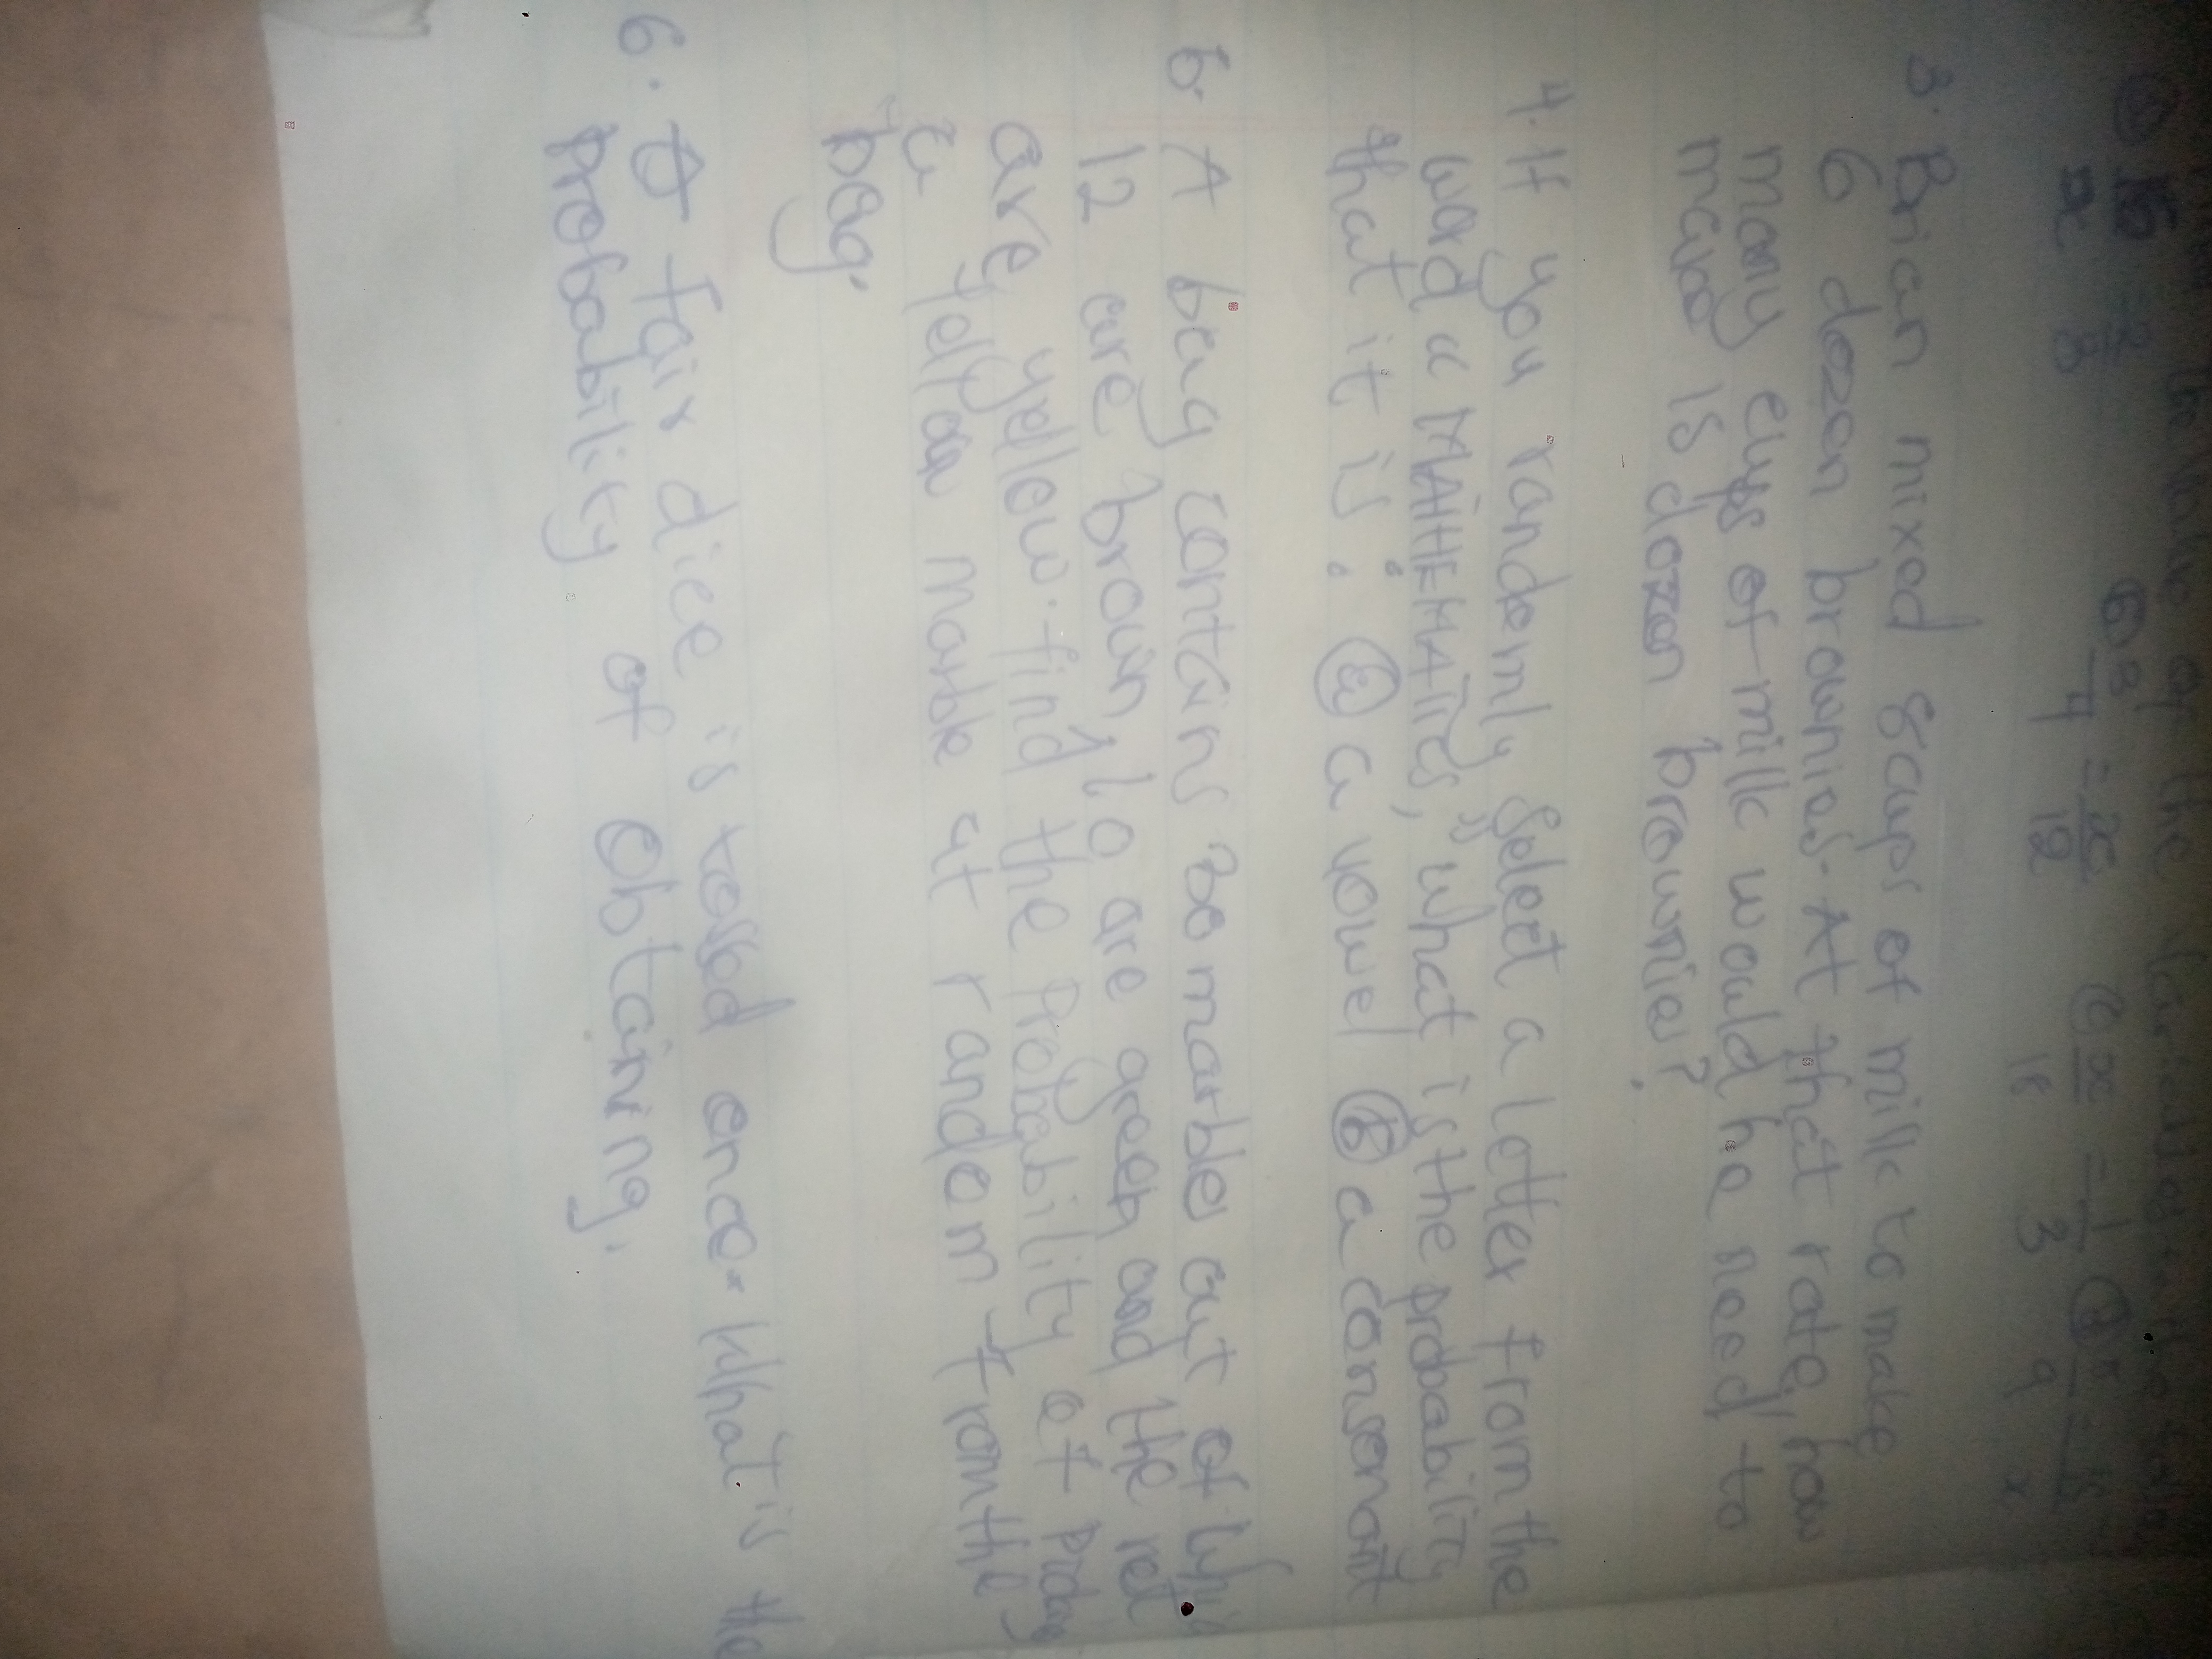 the value of the
(a) 15/x = 3/8 (b) 3/4 = x/12 (c) x/15 = 1/3 9 x
3. Brian mixed 8 cups of milk to make
6 dozen brownies. At that rate, how
many cups of milk would he need to
make 15 dozen brownies?
4. If you randomly select a letter from the
word "MATHEMATICS," what is the probability
that it is: (a) a vowel (b) a consonant
5. A bag contains 30 marbles out of
12 are brown, 10 are green and the rest
are yellow. find the probability of
a yellow marble at random from the
bag.
6. A fair dice is tossed once. What is the
probability of obtaining.